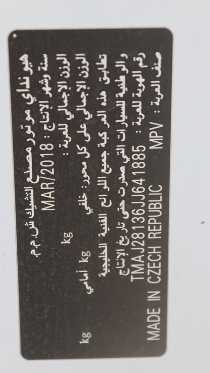 هيونداي موتور مصنع التشيك ش.م.م.
سنة وشهر الإنتاج : MAR/2018
الوزن الإجمالي للعربة : kg
الوزن الإجمالي على كل محور : خلفي kg أمامي kg
تطابق هذه المركبة جميع اللوائح الفنية الخليجية
والوطنية للسيارات التي صدرت حتى تاريخ الإنتاج
رقم الهوية للعربة : TMAJ28136JJ641885
صنف العربة : MPV MADE IN CZECH REPUBLIC